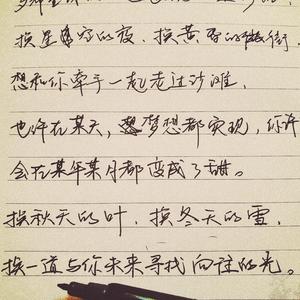 换星星的夜、换黄昏的微街
想和你牵手一起走过沙滩、
也许在某天，梦想都实现，你许
会在某年某月都变成了甜。
换秋天的叶、换冬天的雪、
换一道与你未来寻找向往的光。